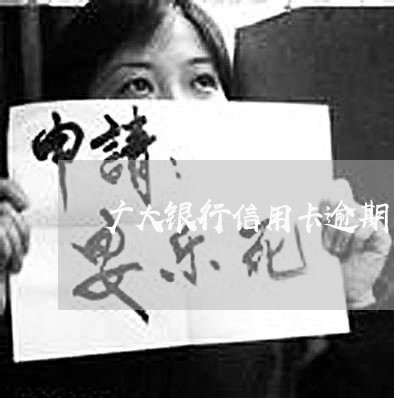 申請：
广大银行信用卡逾期
安乐死